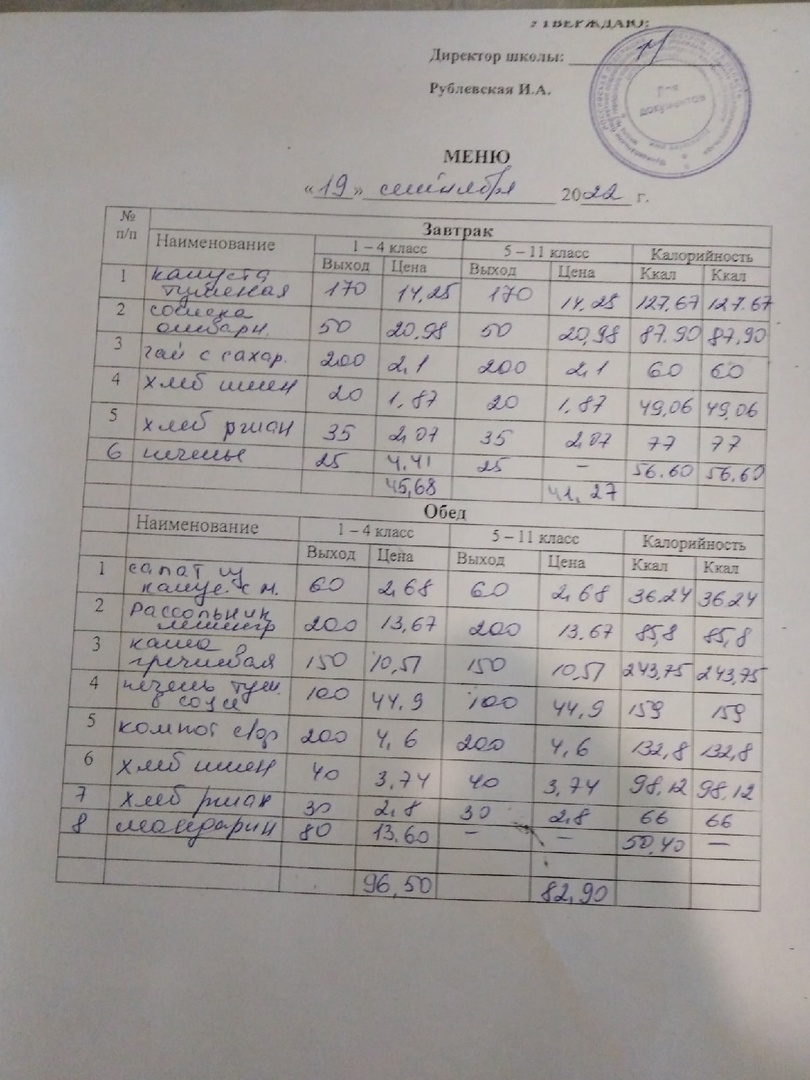 УТВЕРЖДАЮ:
Директор школы:
Рублевская И.А.
Для документов
МЕНЮ
«19» сентября 2022 г.
№ п/п Наименование Завтрак
1 – 4 класс 5 – 11 класс Калорийность
Выход Цена Выход Цена Ккал Ккал
1 капуста тушеная 170 14,25 170 14.25 127.67 127.67
2 сосиска отварн. 50 20,98 50 20,98 87.90 87,90
3 чай с сахар. 200 2,1 200 2,1 60 60
4 хлеб пшен 20 1,87 20 1,87 49,06 49,06
5 хлеб ржан 35 2,07 35 2,07 77 77
6 печенье 25 4.41 25 – 56.60 56.60
45,68 41,27
Обед
Наименование 1 – 4 класс 5 – 11 класс Калорийность
Выход Цена Выход Цена Ккал Ккал
1 салат из капус. с м. 60 2,68 60 2,68 36.24 36.24
2 Рассольник ленингр 200 13,67 200 13.67 85,8 85,8
3 каша гречневая 150 10,51 150 10,51 243,75 243,75
4 печень туш. в соусе 100 44,9 100 44,9 159 159
5 компот с/фр 200 4,6 200 4,6 132,8 132,8
6 хлеб пшен 40 3,74 40 3,74 98,12 98,12
7 хлеб ржан 30 2,8 30 2,8 66 66
8 мандарин 80 13.60 – – 50,40 –
96,50 82,90